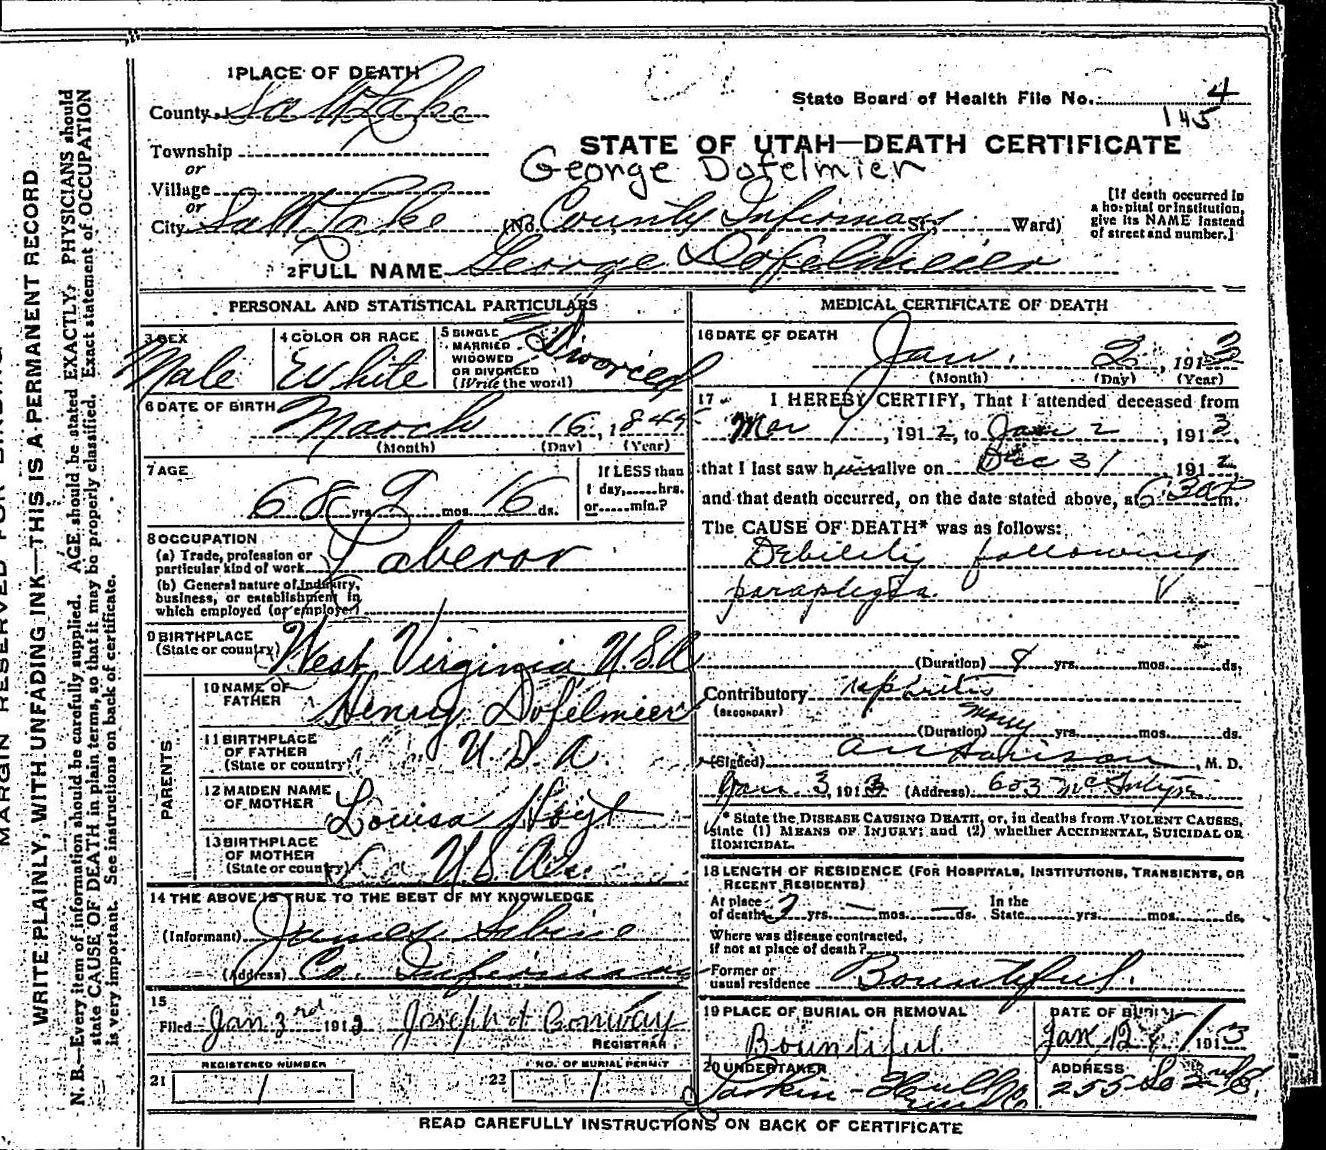 MARGIN RESERVED FOR BINDING
WRITE PLAINLY, WITH UNFADING INK—THIS IS A PERMANENT RECORD
N. B.—Every item of information should be carefully supplied. AGE should be stated EXACTLY. PHYSICIANS should
state CAUSE OF DEATH in plain terms, so that it may be properly classified. Exact statement of OCCUPATION
is very important. See instructions on back of certificate.
1 PLACE OF DEATH
County Salt Lake
Township
or
Village
or
City Salt Lake (No. County Infirmary St.; Ward)
State Board of Health File No. 4
145
STATE OF UTAH—DEATH CERTIFICATE
George Dofelmier
[If death occurred in
a hospital or institution,
give its NAME instead
of street and number.]
2 FULL NAME George Dofelmeier
PERSONAL AND STATISTICAL PARTICULARS
3 SEX Male
4 COLOR OR RACE White
5 SINGLE
MARRIED
WIDOWED
OR DIVORCED
(Write the word) Divorced
6 DATE OF BIRTH March 16, 184
(Month) (Day) (Year)
7 AGE 68 yrs. 9 mos. 16 ds.
If LESS than
1 day, hrs.
or min.?
8 OCCUPATION
(a) Trade, profession or
particular kind of work Laberor
(b) General nature of industry,
business, or establishment in
which employed (or employer)
9 BIRTHPLACE
(State or country) West Virginia U.S.A
PARENTS
10 NAME OF
FATHER Henry Dofelmier
11 BIRTHPLACE
OF FATHER
(State or country) U.S.A.
12 MAIDEN NAME
OF MOTHER Louisa Hoyt
13 BIRTHPLACE
OF MOTHER
(State or country) U.S.A
14 THE ABOVE IS TRUE TO THE BEST OF MY KNOWLEDGE
(Informant) James
(Address) Co. Infirmary
15
Filed Jan 3rd 1913 Joseph H Conway
REGISTRAR
REGISTERED NUMBER
21 1
NO. OF BURIAL PERMIT
22 1
MEDICAL CERTIFICATE OF DEATH
16 DATE OF DEATH
Jan. 2, 1913
(Month) (Day) (Year)
17 I HEREBY CERTIFY, That I attended deceased from
Mar 1, 1912, to Jan 2, 1913,
that I last saw him alive on Dec 31, 1912
and that death occurred, on the date stated above, at 6:30 m.
The CAUSE OF DEATH* was as follows:
Debility following
paraplegia
(Duration) 8 yrs. mos. ds.
Contributory nephritis
(SECONDARY)
(Duration) many yrs. mos. ds.
(Signed) , M. D.
Jan. 3, 1913 (Address) 603 McIntyre
* State the DISEASE CAUSING DEATH, or, in deaths from VIOLENT CAUSES,
state (1) MEANS OF INJURY; and (2) whether ACCIDENTAL, SUICIDAL OR
HOMICIDAL.
18 LENGTH OF RESIDENCE (FOR HOSPITALS, INSTITUTIONS, TRANSIENTS, OR
RECENT RESIDENTS)
At place
of death 2 yrs. — mos. — ds.
In the
State yrs. mos. ds.
Where was disease contracted,
if not at place of death?
Former or
usual residence Bountiful.
19 PLACE OF BURIAL OR REMOVAL
Bountiful
DATE OF BURIAL
Jan 1913
20 UNDERTAKER
Larkin - Hull Co
ADDRESS
255 So
READ CAREFULLY INSTRUCTIONS ON BACK OF CERTIFICATE